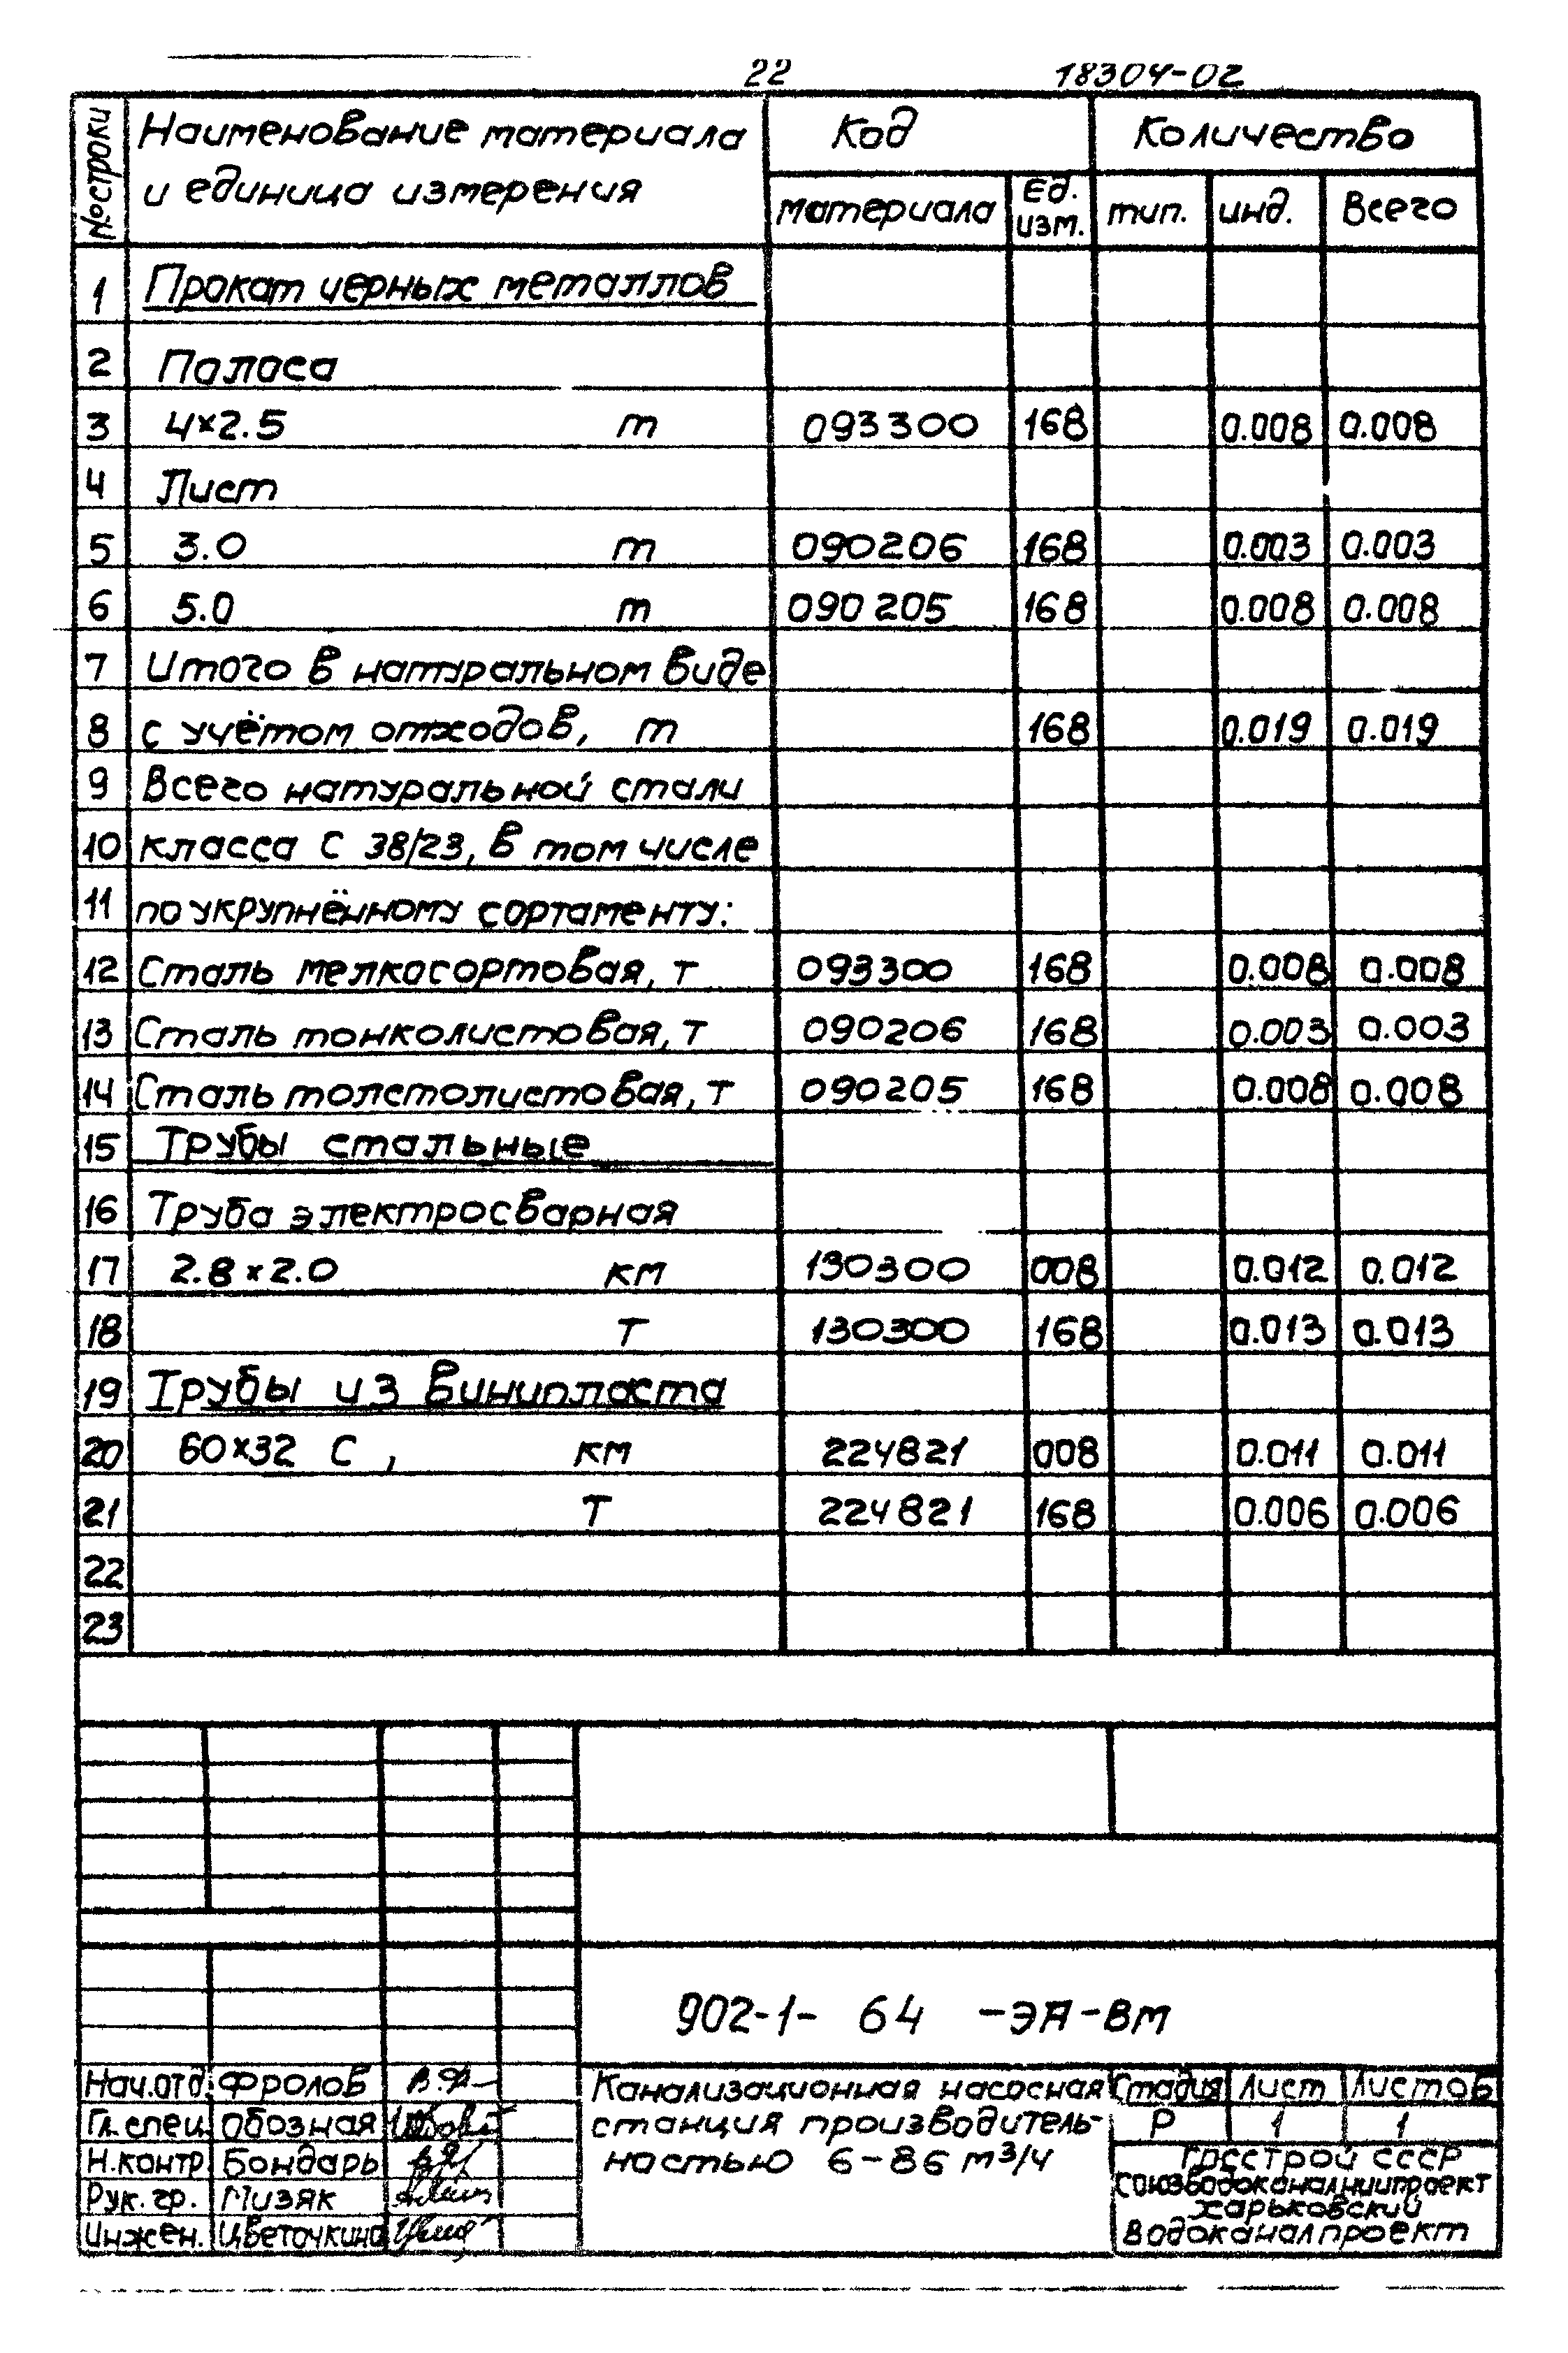 22 18304-02
№ строки Наименование материала Код Количество
и единица измерения материала Ед. изм. тип. инд. Всего
1 Прокат черных металлов
2 Полоса
3 4×2.5 т 093300 168 0.008 0.008
4 Лист
5 3.0 т 090206 168 0.003 0.003
6 5.0 т 090205 168 0.008 0.008
7 Итого в натуральном виде
8 с учётом отходов, т 168 0.019 0.019
9 Всего натуральной стали
10 класса С 38/23, в том числе
11 по укрупнённому сортаменту:
12 Сталь мелкосортовая, т 093300 168 0.008 0.008
13 Сталь тонколистовая, т 090206 168 0.003 0.003
14 Сталь толстолистовая, т 090205 168 0.008 0.008
15 Трубы стальные
16 Труба электросварная
17 2.8×2.0 км 130300 008 0.012 0.012
18 т 130300 168 0.013 0.013
19 Трубы из винипласта
20 60×32 С, км 224821 008 0.011 0.011
21 т 224821 168 0.006 0.006
22
23
902-1- 64 -ЭА-ВМ
Нач.отд. Фролов
Гл.спец. Обозная
Н.контр. Бондарь
Рук.гр. Мизяк
Инжен. Цветочкина
Канализационная насосная
станция производитель-
ностью 6-86 м³/ч
Стадия Лист Листов
Р 1 1
Госстрой СССР
Союзводоканалниипроект
Харьковский
Водоканалпроект